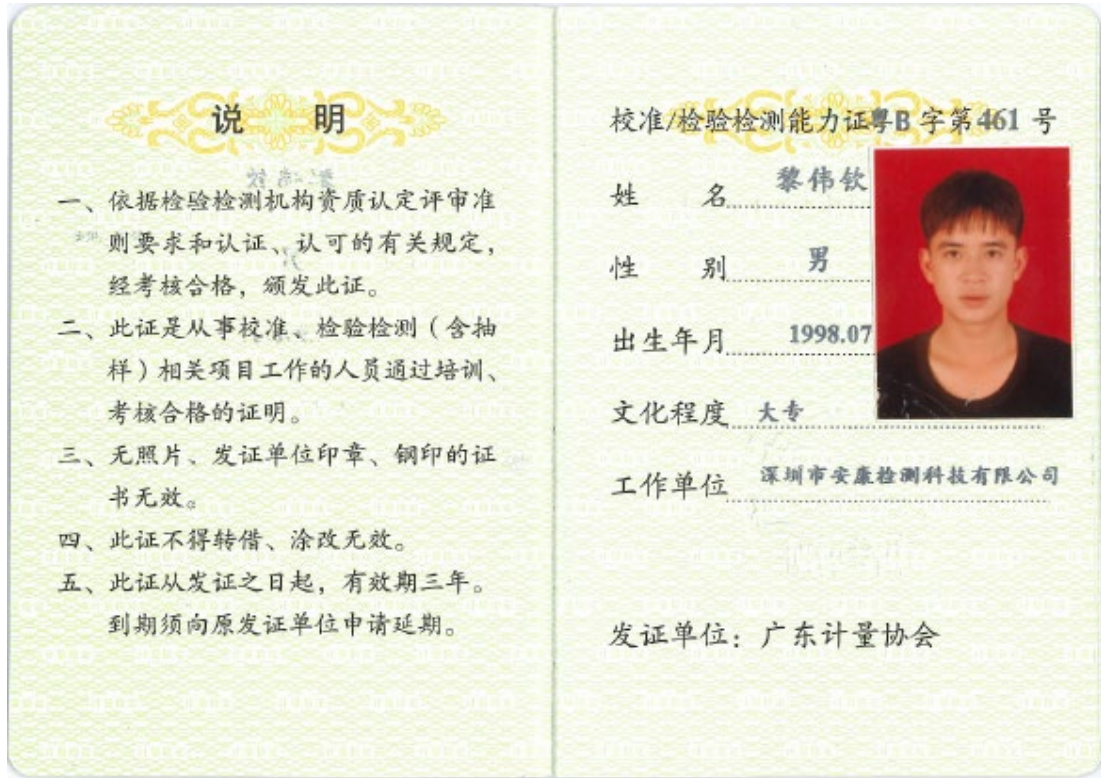 说 明
一、依据检验检测机构资质认定评审准
则要求和认证、认可的有关规定，
经考核合格，颁发此证。
二、此证是从事校准、检验检测（含抽
样）相关项目工作的人员通过培训、
考核合格的证明。
三、无照片、发证单位印章、钢印的证
书无效。
四、此证不得转借、涂改无效。
五、此证从发证之日起，有效期三年。
到期须向原发证单位申请延期。
校准/检验检测能力证粤B字第461号
姓 名 黎伟钦
性 别 男
出生年月 1998.07
文化程度 大专
工作单位 深圳市安康检测科技有限公司
发证单位：广东计量协会